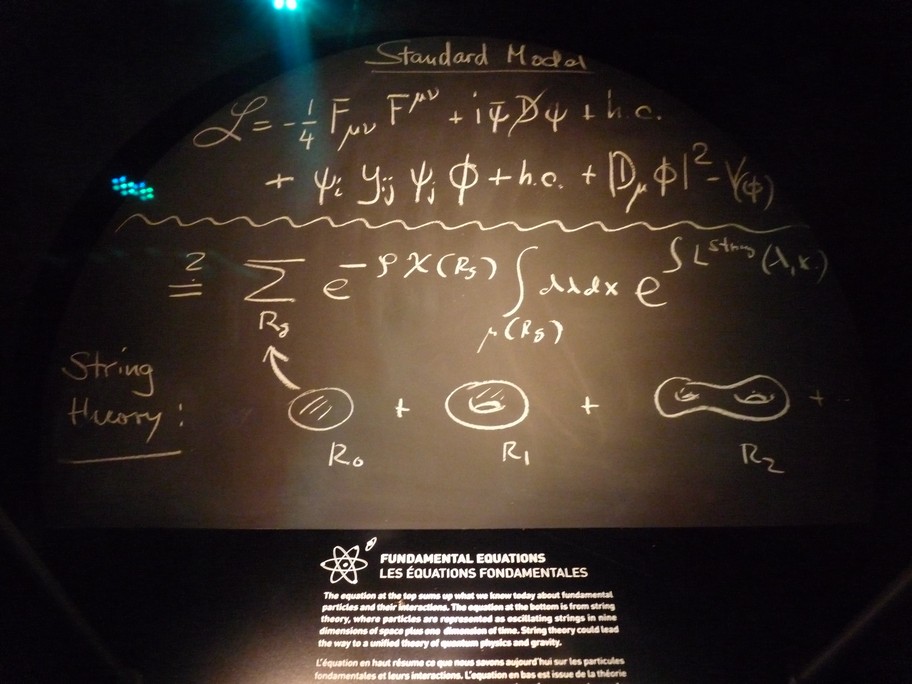 Standard Model
ℒ = -1/4 F_μν F^μν + iψ̄D̸ψ + h.c.
+ ψ_i y_ij ψ_j ϕ + h.c. + |D_μ ϕ|² - V(ϕ)
?= Σ_{R_g} e^{-ρχ(R_g)} ∫_{μ(R_g)} dλdx e^{∫L^string (λ,x)}
String
theory:
+ + +
R₀ R₁ R₂
FUNDAMENTAL EQUATIONS
LES ÉQUATIONS FONDAMENTALES
The equation at the top sums up what we know today about fundamental
particles and their interactions. The equation at the bottom is from string
theory, where particles are represented as oscillating strings in nine
dimensions of space plus one dimension of time. String theory could lead
the way to a unified theory of quantum physics and gravity.
L'équation en haut résume ce que nous savons aujourd'hui sur les particules
fondamentales et leurs interactions. L'équation en bas est issue de la théorie